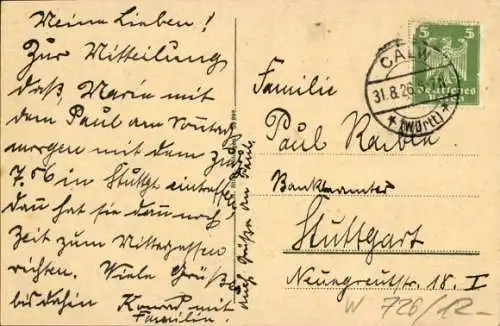 Meine Lieben!
Zur Mitteilung
daß, Maria mit
dem Paul am Sonntag
morgen mit dem Zug
7.56 in Stuttgt eintrifft
dann hat sie dann noch
Zeit zum Mittagessen
richten. Viele Grüße
bis dahin Konrad mit
Familie.
auch Grüße an Paul
CALW
31.8.26
(Württ)
5 5
Deutsches Reich
Familie
Paul
Bankbeamter
Stuttgart
18. I
W 726/12.-